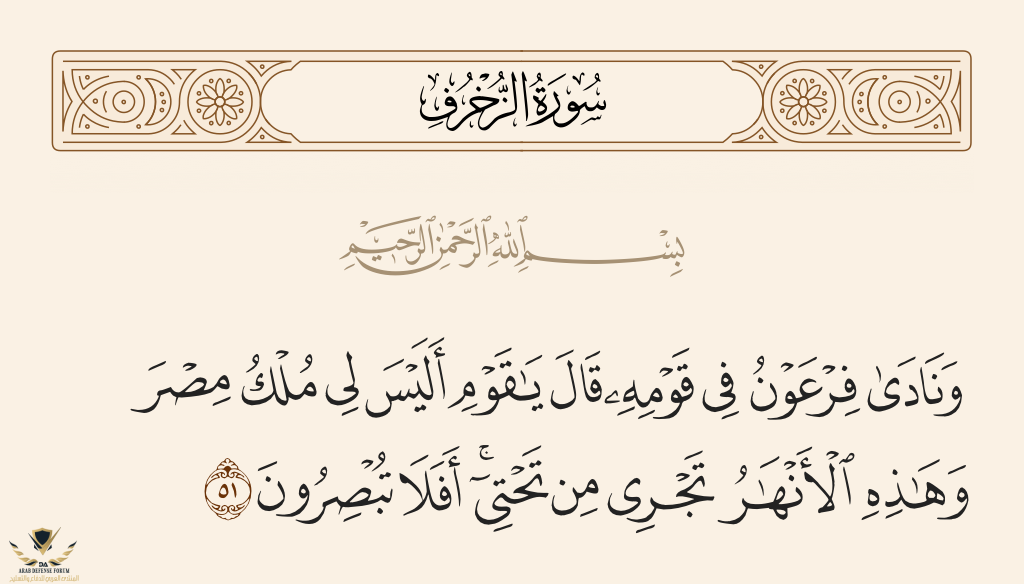 سُورَةُ الزُّخْرُفِ
بِسْمِ ٱللَّهِ ٱلرَّحْمَٰنِ ٱلرَّحِيمِ
وَنَادَىٰ فِرْعَوْنُ فِى قَوْمِهِۦ قَالَ يَـٰقَوْمِ أَلَيْسَ لِى مُلْكُ مِصْرَ
وَهَـٰذِهِ ٱلْأَنْهَـٰرُ تَجْرِى مِن تَحْتِىٓ ۚ أَفَلَا تُبْصِرُونَ ٥١
ARAB DEFENSE FORUM
المنتدى العربي للدفاع والتسليح